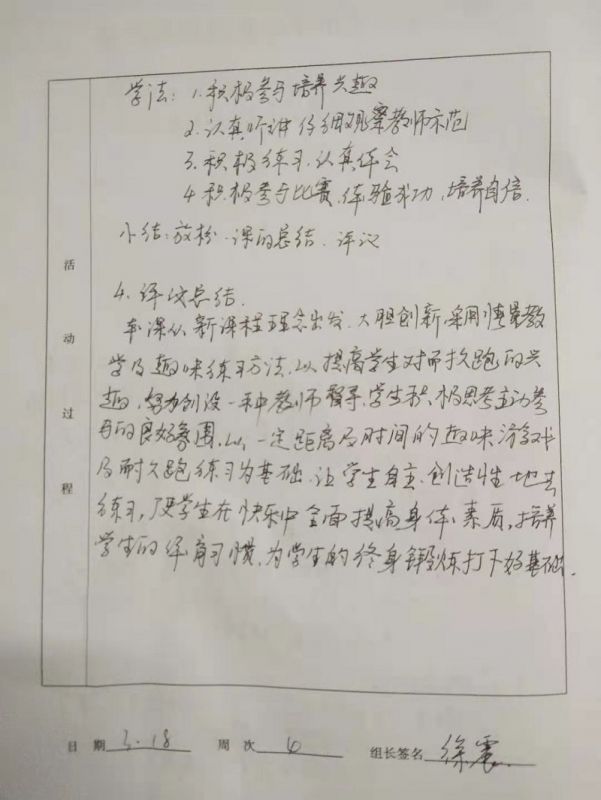 学法：1.积极参与培养兴趣
2.认真听讲仔细观察教师示范
3.积极练习,认真体会
4.积极参与比赛,体验成功,培养自信.
小结:放松.课的总结.评议
4.评议总结.
本课从新课程理念出发.大胆创新,采用情景教
学及趣味练习方法,以提高学生对耐久跑的兴
趣,努力创设一种教师督导,学生积极思考主动参
与的良好氛围,以一定距离及时间的趣味游戏
及耐久跑练习为基础.让学生自主、创造性地去
练习,使学生在快乐中全面提高身体素质,培养
学生的体育习惯,为学生的终身锻炼打下好基础.
活
动
过
程
日 期 3.18 周 次 组长签名 徐震